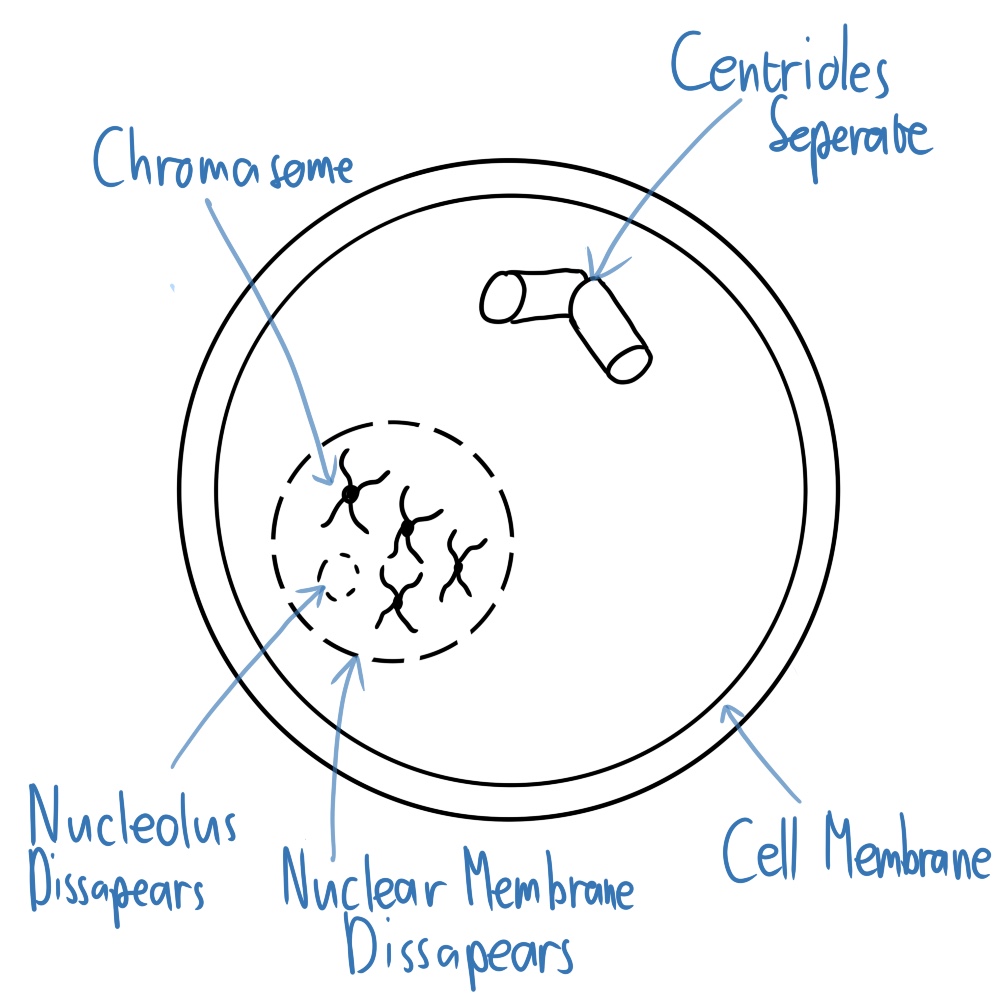 Centrioles
Seperate
Chromasome
Nucleolus
Dissapears
Nuclear Membrane
Dissapears
Cell Membrane